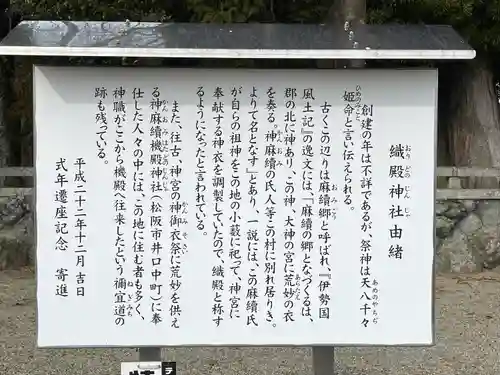 織殿神社由緒
おりどのじんじゃ
創建の年は不詳であるが、祭神は天八千々
あめのやちぢ
姫命と言い伝えられる。
ひめのみこと
古くこの辺りは麻續郷と呼ばれ、『伊勢国
おうみごう
風土記』の逸文には、「麻續の郷となづくるは、
郡の北に神あり、この神、大神の宮に荒妙の衣
あらたえ
を奏る。神麻續の人等この村に別れ居りき。
よりて名となす」とあり、一説には、この麻續氏
が自らの祖神をこの地の小藪に祀って、神宮に
奉献する神衣を調製していたので、織殿と称す
るようになったと言われている。
また、往古、神宮の神御衣祭に荒妙を供え
かんみそさい
る神麻續機殿神社(松阪市井口中町)に奉
かんおみはたどのじんじゃ
仕した人々の中には、この地に住む者も多く、
神職がここから機殿へ往来したという禰宜道の
ねぎみち
跡も残っている。
平成二十二年十二月吉日
式年遷座記念 寄進